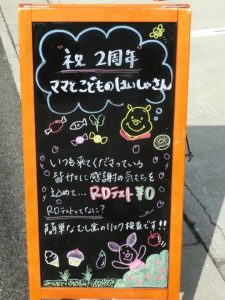 "祝 2周年"
ママとこどものはいしゃさん
いつも来てくださっている
皆サマに感謝の気もちを
込めて… RDテスト ¥0
RDテストってなに?
簡単なむし歯のリスク検査です!!